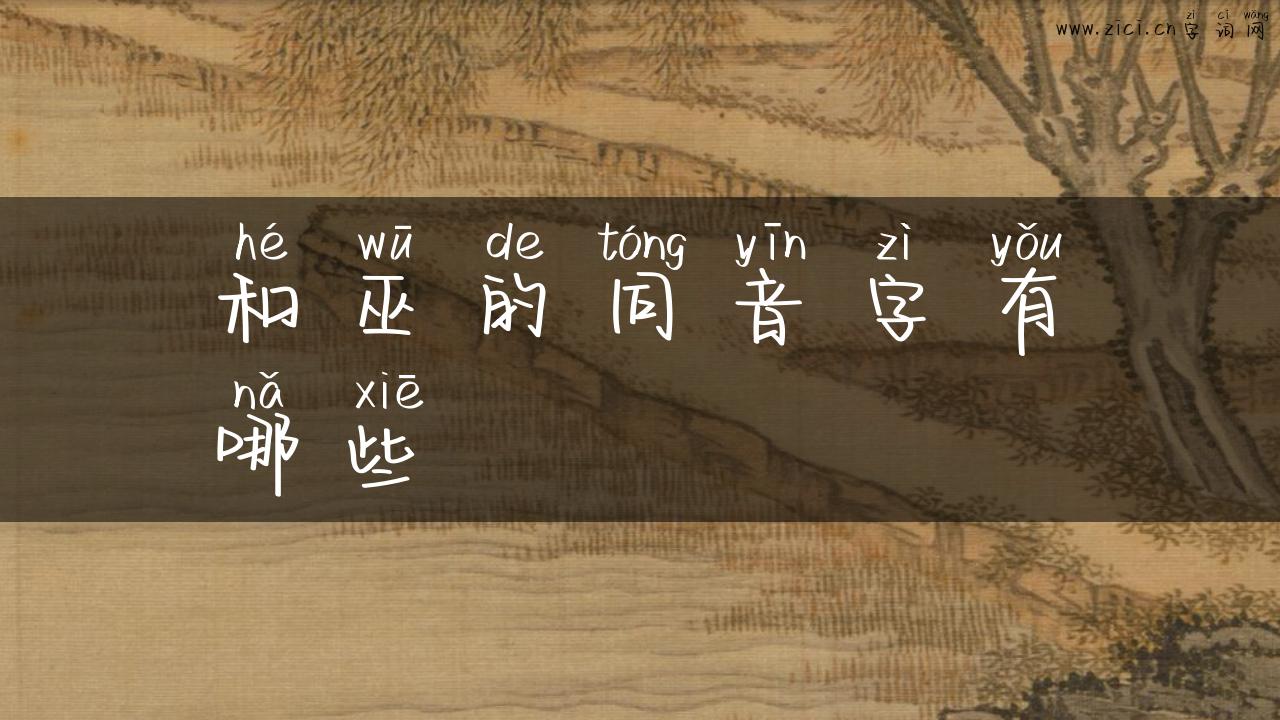 zì cí wǎng
www.zici.cn 字词网
hé wū de tóng yīn zì yǒu
和巫的同音字有
nǎ xiē
哪些